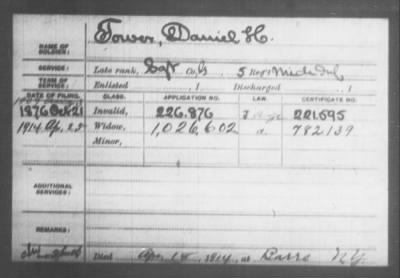 NAME OF SOLDIER: Tower, Daniel H.
SERVICE: Late rank, Capt Co. G 5 Reg't Mich Inf
TERM OF SERVICE: Enlisted , 1 Discharged , 1
DATE OF FILING. CLASS. APPLICATION NO. LAW. CERTIFICATE NO.
1876 Oct 21 Invalid, 226.876 221.695
1914 Ap. 25 Widow, 1,026,602 782139
Minor,
ADDITIONAL SERVICES:
REMARKS:
Died Apr 15, 1914, at Barre N.Y.